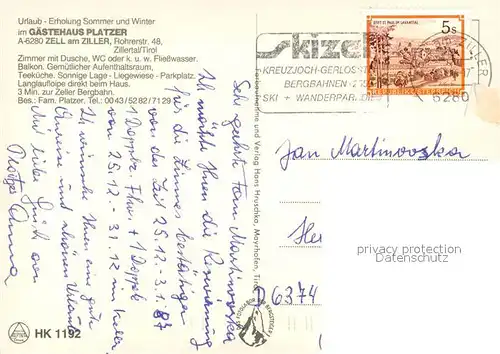 Urlaub - Erholung Sommer und Winter
im GÄSTEHAUS PLATZER
A-6280 ZELL am ZILLER, Rohrerstr. 48,
Zillertal/Tirol
Zimmer mit Dusche, WC oder k. u. w. Fließwasser.
Balkon. Gemütlicher Aufenthaltsraum,
Teeküche. Sonnige Lage - Liegewiese - Parkplatz.
Langlaufloipe direkt beim Haus.
3 Min. zur Zeller Bergbahn.
Bes.: Fam. Platzer, Tel.: 0043/5282/7129
Sehr geehrte Fam Martinovska
Ich möchte Ihnen die Reservierung
für die Zimmer bestätigen
von der Zeit 25.12. - 3.1.87
1 Doppelz. + 1 Doppelz
von 25.12 - 31.12 im Keller
Ich wünsche Ihnen eine gute
Anreise und schönen Urlaub
Mit lieben Gruß
Platzer Anna
HK 1192
Farbaufnahme und Verlag Hans Hruschka, Mayrhofen, Tirol
skizen
KREUZJOCH-GERLOSST
BERGBAHNEN
SKI + WANDERPAR
ZILLER
6280
STIFT ST. PAUL IM LAVANTTAL
5 S
REPUBLIK ÖSTERREICH
Jan Martinovska
D 6374
privacy protection